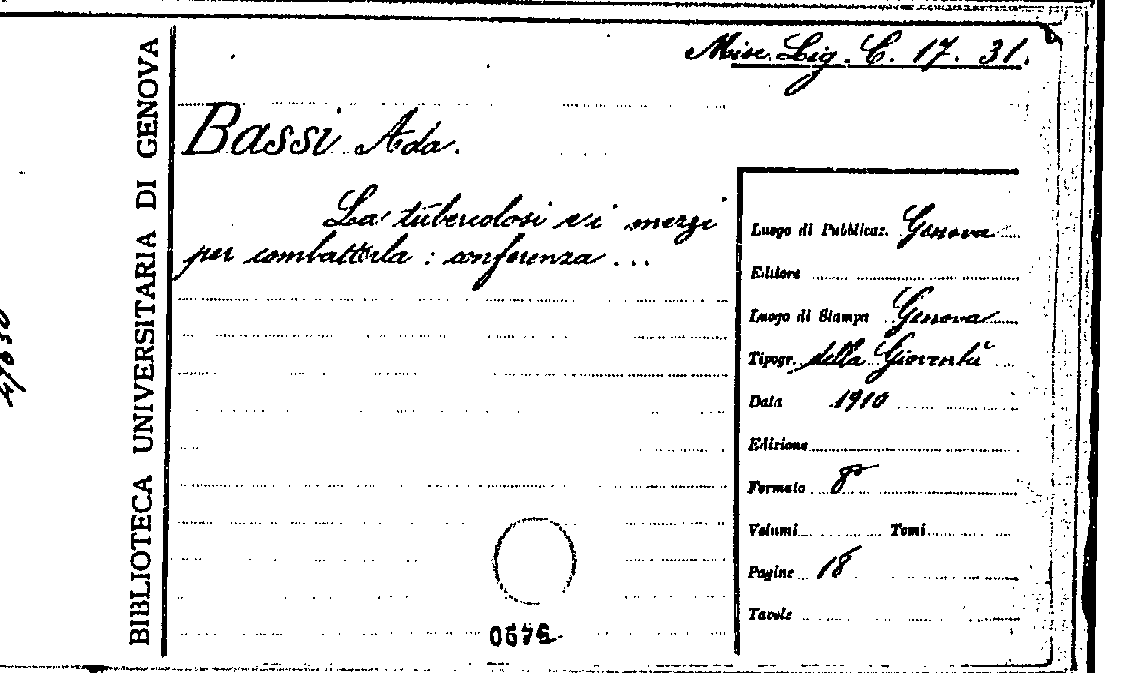 Misc. Lig. C. 17. 31.
BIBLIOTECA UNIVERSITARIA DI GENOVA
Bassi Ada.
La tubercolosi e i mezzi
per combatterla : conferenza ...
Luogo di Pubblicaz. Genova
Editore
Luogo di Stampa Genova
Tipogr. della Gioventù
Data 1910
Edizione
Formato 8°
Volumi Tomi
Pagine 18
Tavole